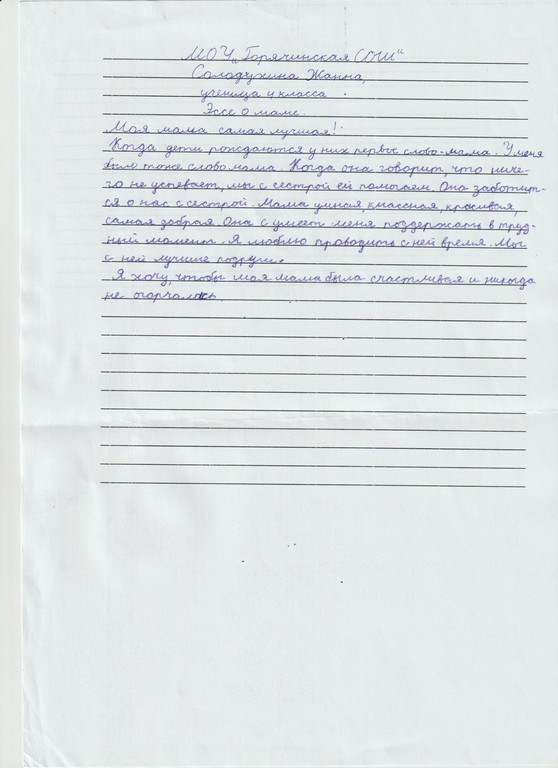 МОУ „Горячинская СОШ“
Солодухина Жанна,
ученица 4 класса
Эссе о маме.
Моя мама самая лучшая!
Когда дети рождаются у них первое слово-мама. У меня
было тоже слово мама. Когда она говорит, что ниче-
го не успевает, мы с сестрой ей помогаем. Она заботит-
ся о нас с сестрой. Мама умная, классная, красивая,
самая добрая. Она с умеет меня поддержать в труд-
ный момент. Я люблю проводить с ней время. Мы
с ней лучшие подруги.
Я хочу, чтобы моя мама была счастливая и никогда
не огорчалась